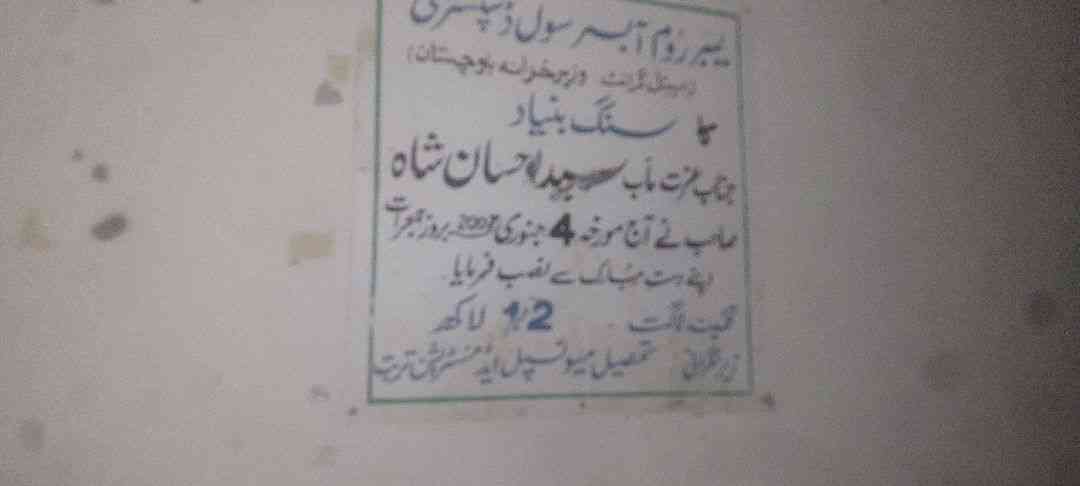 لیبر روم آبسر سول ڈسپنسری
(سپیشل گرانٹ وزیر خزانہ بلوچستان)
کا سنگ بنیاد
جناب عزت مآب سید احسان شاہ
صاحب نے آج مورخہ 4 جنوری 2007 بروز جمعرات
اپنے دست مبارک سے نصب فرمایا
تخمینہ لاگت 2 1/2 لاکھ
زیر نگرانی تحصیل میونسپل ایڈمنسٹریشن تربت